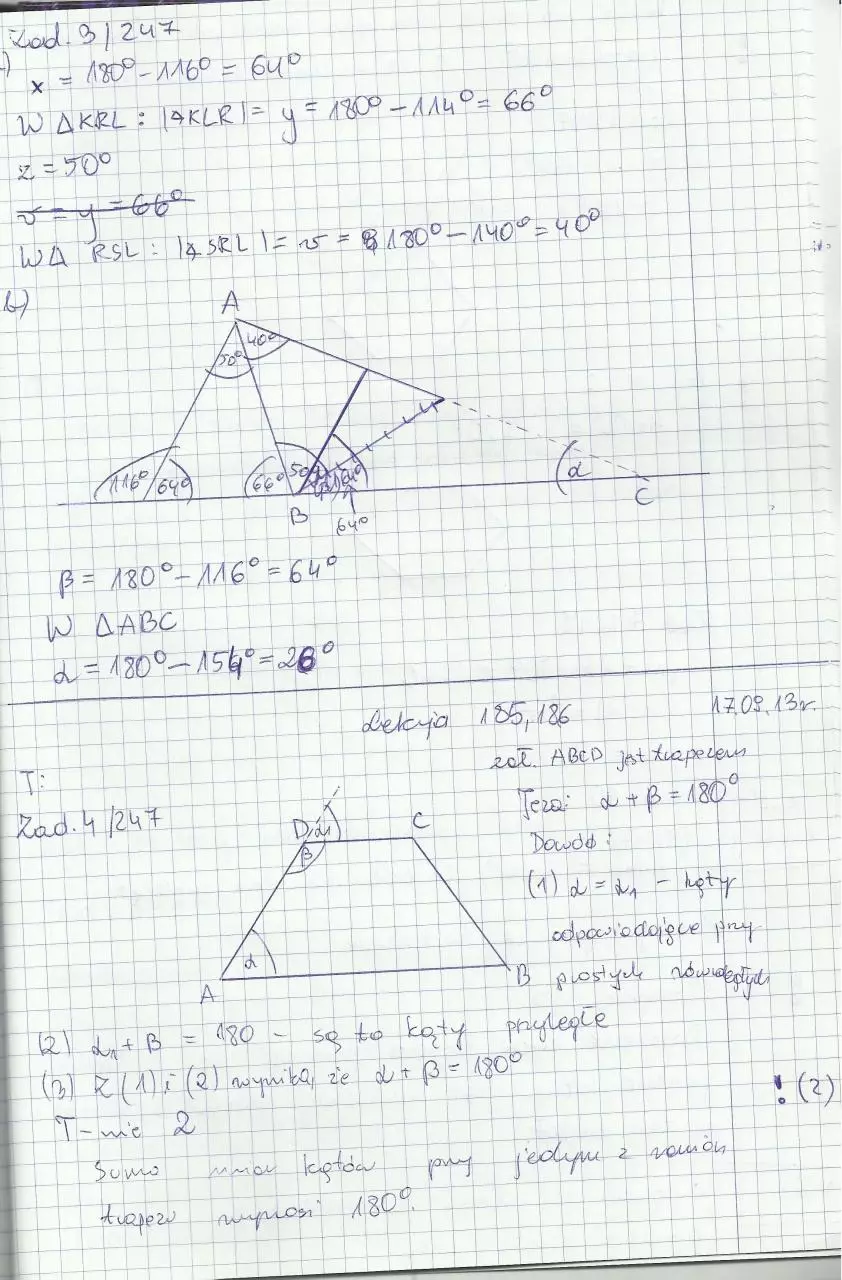 Zad. 3 / 247
x = 180° - 116° = 64°
W ΔKRL : |∢KLR| = y = 180° - 114° = 66°
z = 50°
v = y = 66°
W Δ RSL : |∢SRL| = v = 180° - 140° = 40°
b)
A
40°
50°
116° 64° 66° 50° β 64° α
B C
64°
β = 180° - 116° = 64°
W ΔABC
α = 180° - 154° = 26°
Lekcja 185, 186 17.09.13r.
T:
zał. ABCD jest trapezem
Zad. 4 / 247
Teza: α + β = 180°
D α₁ C
β
Dowód:
(1) α = α₁ - kąty
odpowiadające przy
α
A B
prostych równoległych
(2) α₁ + β = 180 - są to kąty przyległe
(3) Z (1) i (2) wynika, że α + β = 180°
! (2)
T-nie 2
Suma miar kątów przy jednym z ramion
trapezu wynosi 180°.